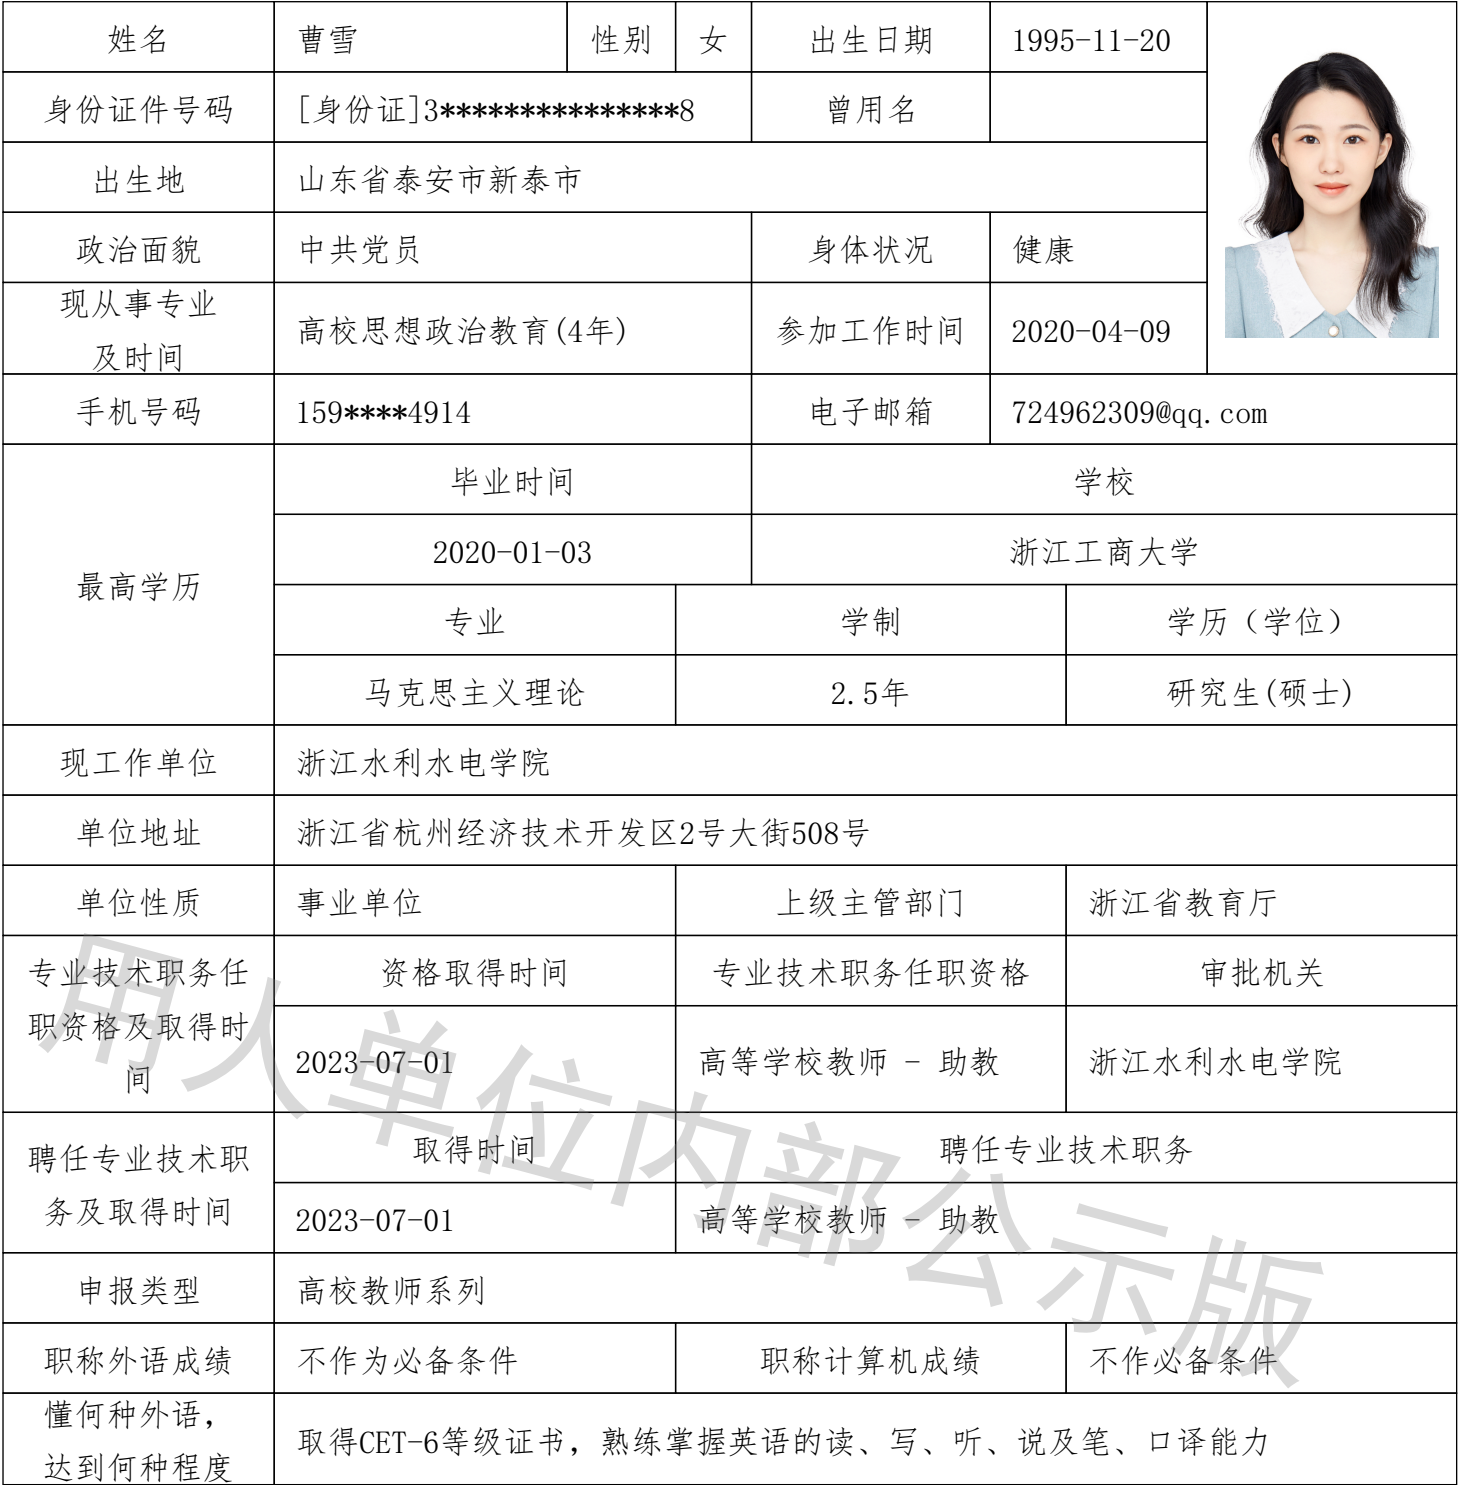 姓名 曹雪 性别 女 出生日期 1995-11-20
身份证件号码 [身份证]3***************8 曾用名
出生地 山东省泰安市新泰市
政治面貌 中共党员 身体状况 健康
现从事专业
及时间 高校思想政治教育(4年) 参加工作时间 2020-04-09
手机号码 159****4914 电子邮箱 724962309@qq.com
最高学历
毕业时间 学校
2020-01-03 浙江工商大学
专业 学制 学历（学位）
马克思主义理论 2.5年 研究生(硕士)
现工作单位 浙江水利水电学院
单位地址 浙江省杭州经济技术开发区2号大街508号
单位性质 事业单位 上级主管部门 浙江省教育厅
专业技术职务任
职资格及取得时
间
资格取得时间 专业技术职务任职资格 审批机关
2023-07-01 高等学校教师 - 助教 浙江水利水电学院
聘任专业技术职
务及取得时间
取得时间 聘任专业技术职务
2023-07-01 高等学校教师 - 助教
申报类型 高校教师系列
职称外语成绩 不作为必备条件 职称计算机成绩 不作必备条件
懂何种外语，
达到何种程度 取得CET-6等级证书，熟练掌握英语的读、写、听、说及笔、口译能力
用人单位内部公示版